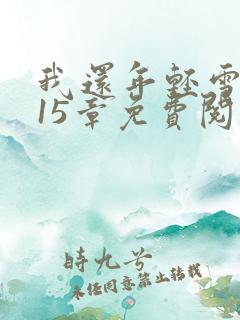 我還年輕需
15章免費閱
時九兮
未任同意禁止转载